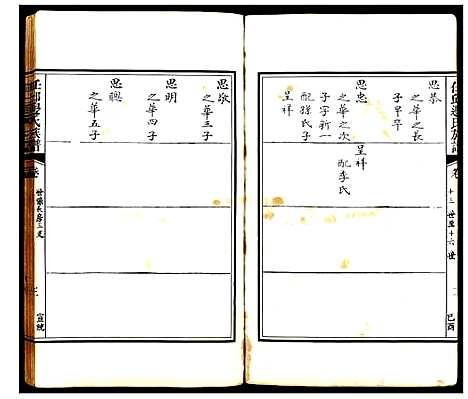 思恭
之華之長
子早卒
思忠
之華之次
子字新一
配孫氏子
呈祥
呈祥
配李氏
卷
十三世至十六世
己酉
思敬
之華三子
思明
之華四子
思聰
之華五子
任邱邊氏族譜
卷
世係長房三支
宣統